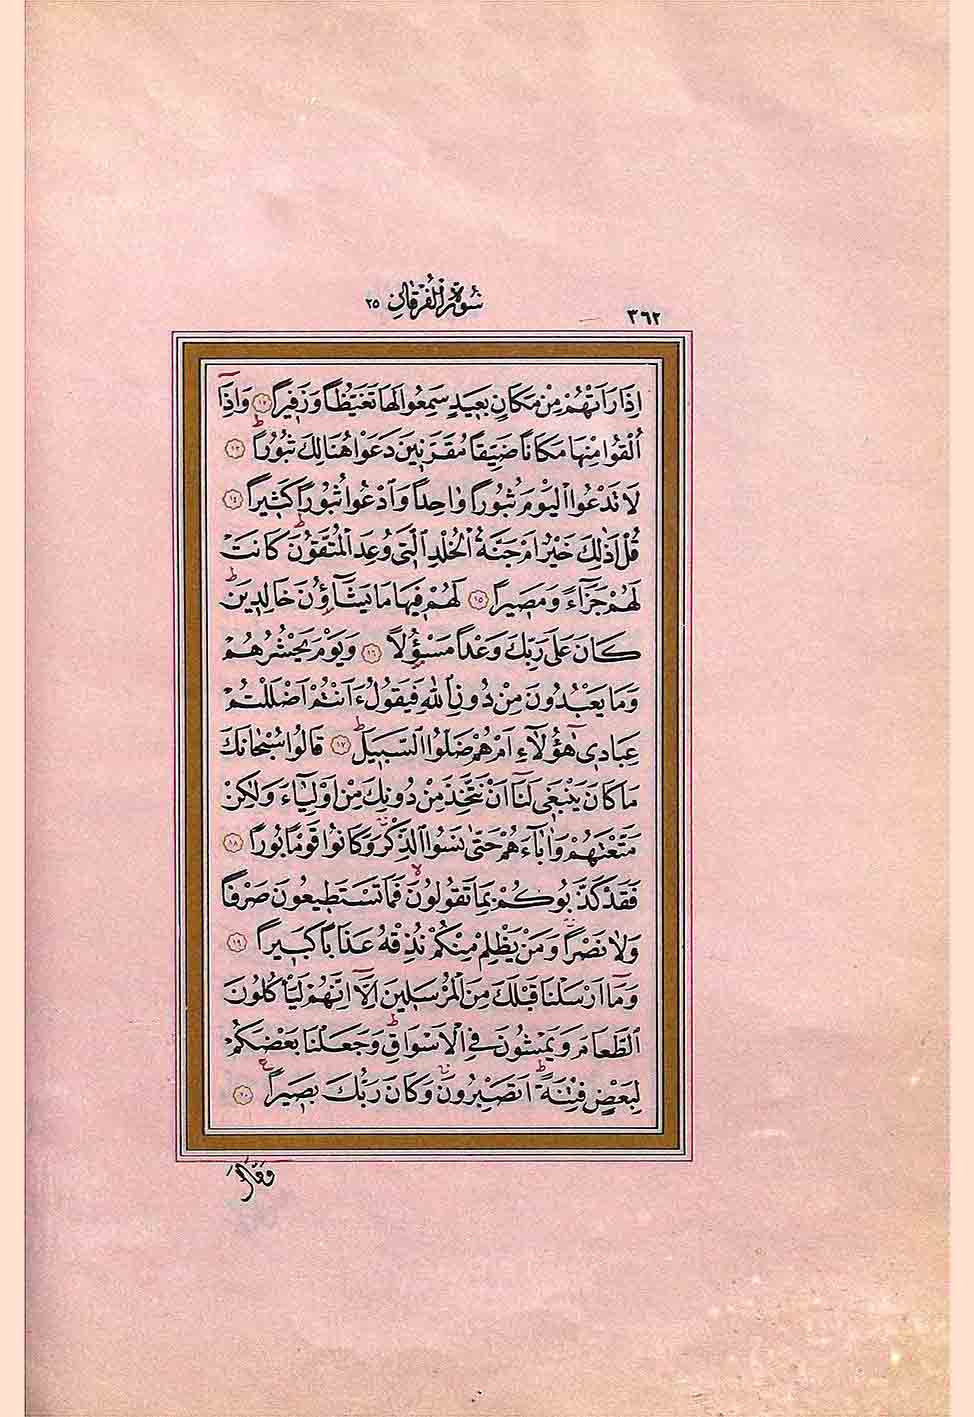 ٣٦٢ سُورَةُ الْفُرْقَانِ ٢٥
اِذَا رَاَتْهُمْ مِنْ مَكَانٍ بَعٖيدٍ سَمِعُوا لَهَا تَغَيُّظًا وَزَفٖيرًا ﴿١٢﴾ وَاِذَٓا
اُلْقُوا مِنْهَا مَكَانًا ضَيِّقًا مُقَرَّنٖينَ دَعَوْا هُنَالِكَ ثُبُورًاؕ ﴿١٣﴾
لَا تَدْعُوا الْيَوْمَ ثُبُورًا وَاحِدًا وَادْعُوا ثُبُورًا كَثٖيرًا ﴿١٤﴾
قُلْ اَذٰلِكَ خَيْرٌ اَمْ جَنَّةُ الْخُلْدِ الَّتٖي وُعِدَ الْمُتَّقُونَؕ كَانَتْ
لَهُمْ جَزَٓاءً وَمَصٖيرًا ﴿١٥﴾ لَهُمْ فٖيهَا مَا يَشَٓاؤُ۫نَ خَالِدٖينَؕ
كَانَ عَلٰى رَبِّكَ وَعْدًا مَسْؤُ۫لًا ﴿١٦﴾ وَيَوْمَ يَحْشُرُهُمْ
وَمَا يَعْبُدُونَ مِنْ دُونِ اللّٰهِ فَيَقُولُ ءَاَنْتُمْ اَضْلَلْتُمْ
عِبَادٖي هٰٓؤُ۬لَٓاءِ اَمْ هُمْ ضَلُّوا السَّبٖيلَؕ ﴿١٧﴾ قَالُوا سُبْحَانَكَ
مَا كَانَ يَنْبَغٖي لَنَٓا اَنْ نَتَّخِذَ مِنْ دُونِكَ مِنْ اَوْلِيَٓاءَ وَلٰكِنْ
مَتَّعْتَهُمْ وَاٰبَٓاءَهُمْ حَتّٰى نَسُوا الذِّكْرَۚ وَكَانُوا قَوْمًا بُورًا ﴿١٨﴾
فَقَدْ كَذَّبُوكُمْ بِمَا تَقُولُونَۙ فَمَا تَسْتَطٖيعُونَ صَرْفًا
وَلَا نَصْرًاۚ وَمَنْ يَظْلِمْ مِنْكُمْ نُذِقْهُ عَذَابًا كَبٖيرًا ﴿١٩﴾
وَمَٓا اَرْسَلْنَا قَبْلَكَ مِنَ الْمُرْسَلٖينَ اِلَّٓا اِنَّهُمْ لَيَأْكُلُونَ
الطَّعَامَ وَيَمْشُونَ فِي الْاَسْوَاقِؕ وَجَعَلْنَا بَعْضَكُمْ
لِبَعْضٍ فِتْنَةًؕ اَتَصْبِرُونَۚ وَكَانَ رَبُّكَ بَصٖيرًا ﴿٢٠﴾
وَقَالَ